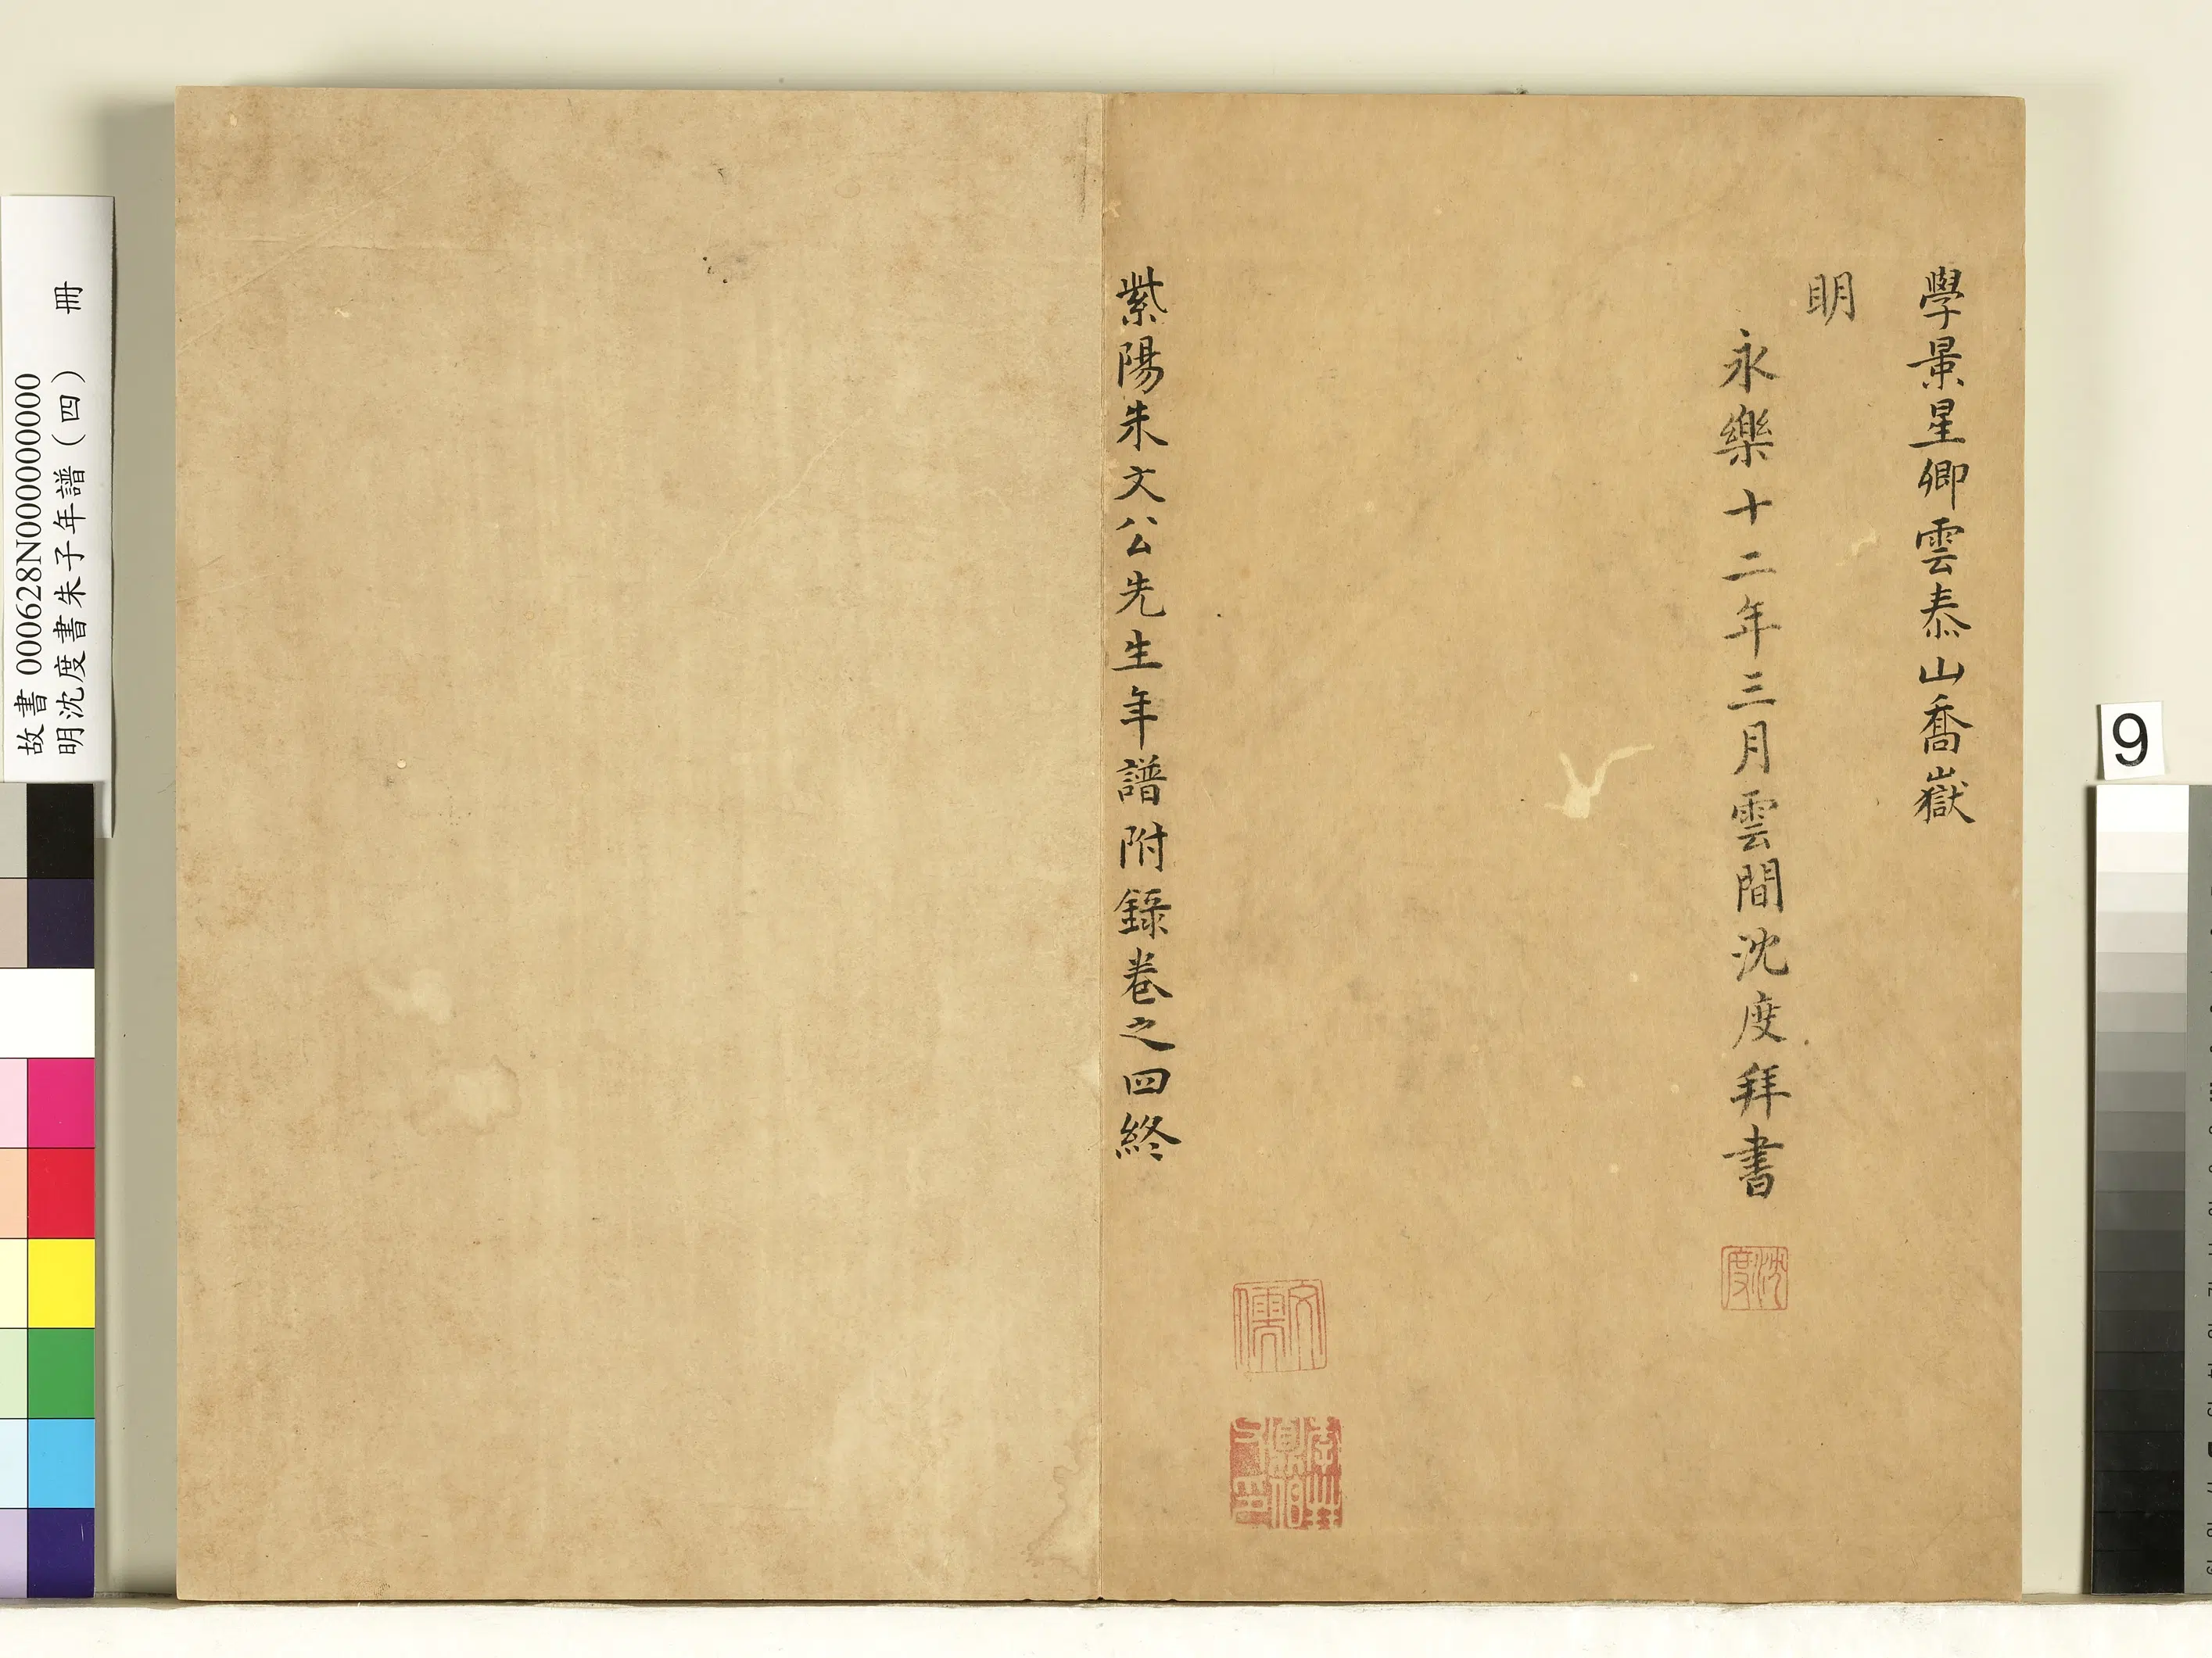 學景星卿雲泰山喬嶽
明
永樂十二年三月雲間沈度拜書
沈度
紫陽朱文公先生年譜附錄卷之四終
文儒
故書 000628N000000000
明沈度書朱子年譜（四） 冊
9